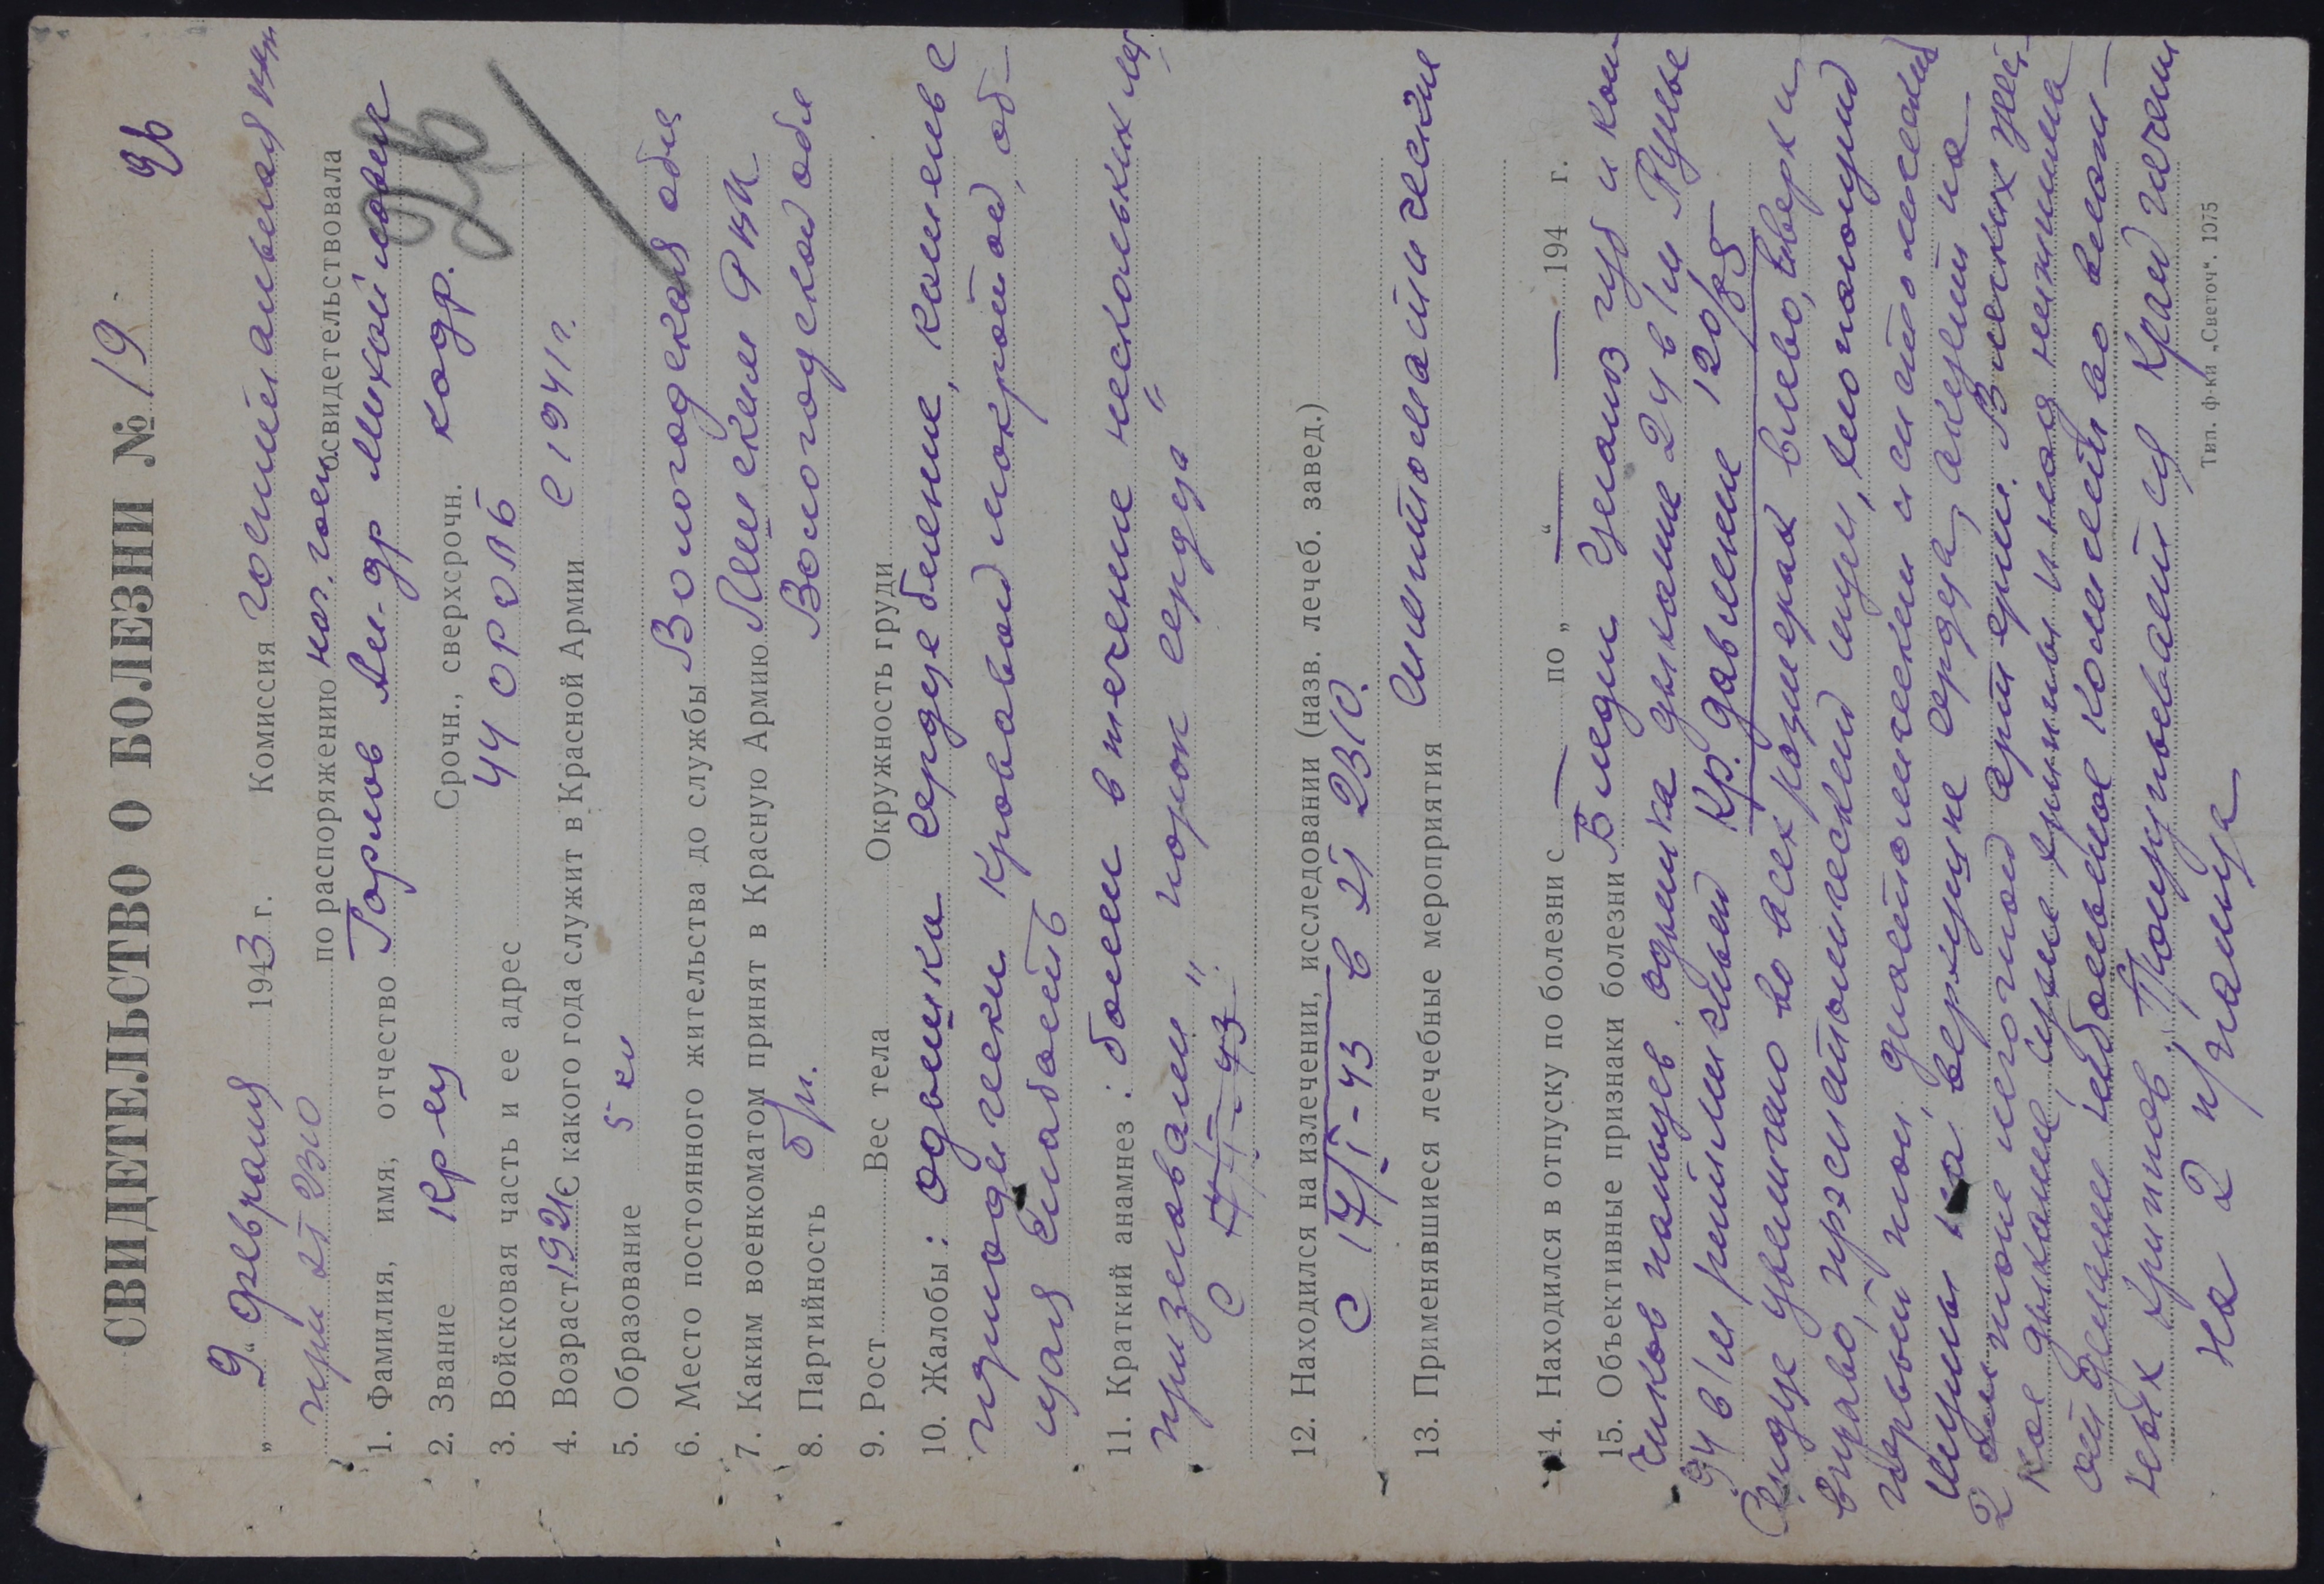 СВИДЕТЕЛЬСТВО О БОЛЕЗНИ № 19
„ 9 “ февраля 1943 г. Комиссия госпитальная
при ЭГ 2310 по распоряжению нач. госп. освидетельствовала
1. Фамилия, имя, отчество Горлов Ал-др Михайлович
2. Звание кр-ец Срочн., сверхсрочн. кадр.
3. Войсковая часть и ее адрес 44 ОРОЛБ
4. Возраст 192 С какого года служит в Красной Армии с 1941 г.
5. Образование 5 кл
6. Место постоянного жительства до службы Вологодская обл
7. Каким военкоматом принят в Красную Армию РВК
8. Партийность б/п. Вологодской обл
9. Рост Вес тела Окружность груди
10. Жалобы: одышка сердцебиение, кашель с
периодически кровавой мокротой, об-
щая слабость
11. Краткий анамнез: болен в течение нескольких лет
признавали " порок сердца "
12. Находился на излечении, исследовании (назв. лечеб. завед.)
С 17/I-43 в ЭГ 2310.
13. Применявшиеся лечебные мероприятия симптоматические
14. Находился в отпуску по болезни с — по „ — “ — 194 г.
15. Объективные признаки болезни Бледн цианоз губ и кон
чиков пальцев. одышка дыхание 24 в 1 м Пульс
94 в 1 м ритмичный Кр. давление 120/85
Сердце увеличено во всех размерах влево, вверх и
вправо, пресистолический шум,
первый тон, диастолический и систолический
шумы на верхушке сердца, акцент на
2 тоне легочной артерии. В легких жест-
кое дыхание, сухие хрипы и над нижними
отделами небольшое количество влаж-
ных хрипов. Пальпируется край печени
на 2 пальца
Тип. ф-ки „Светоч“. 1075